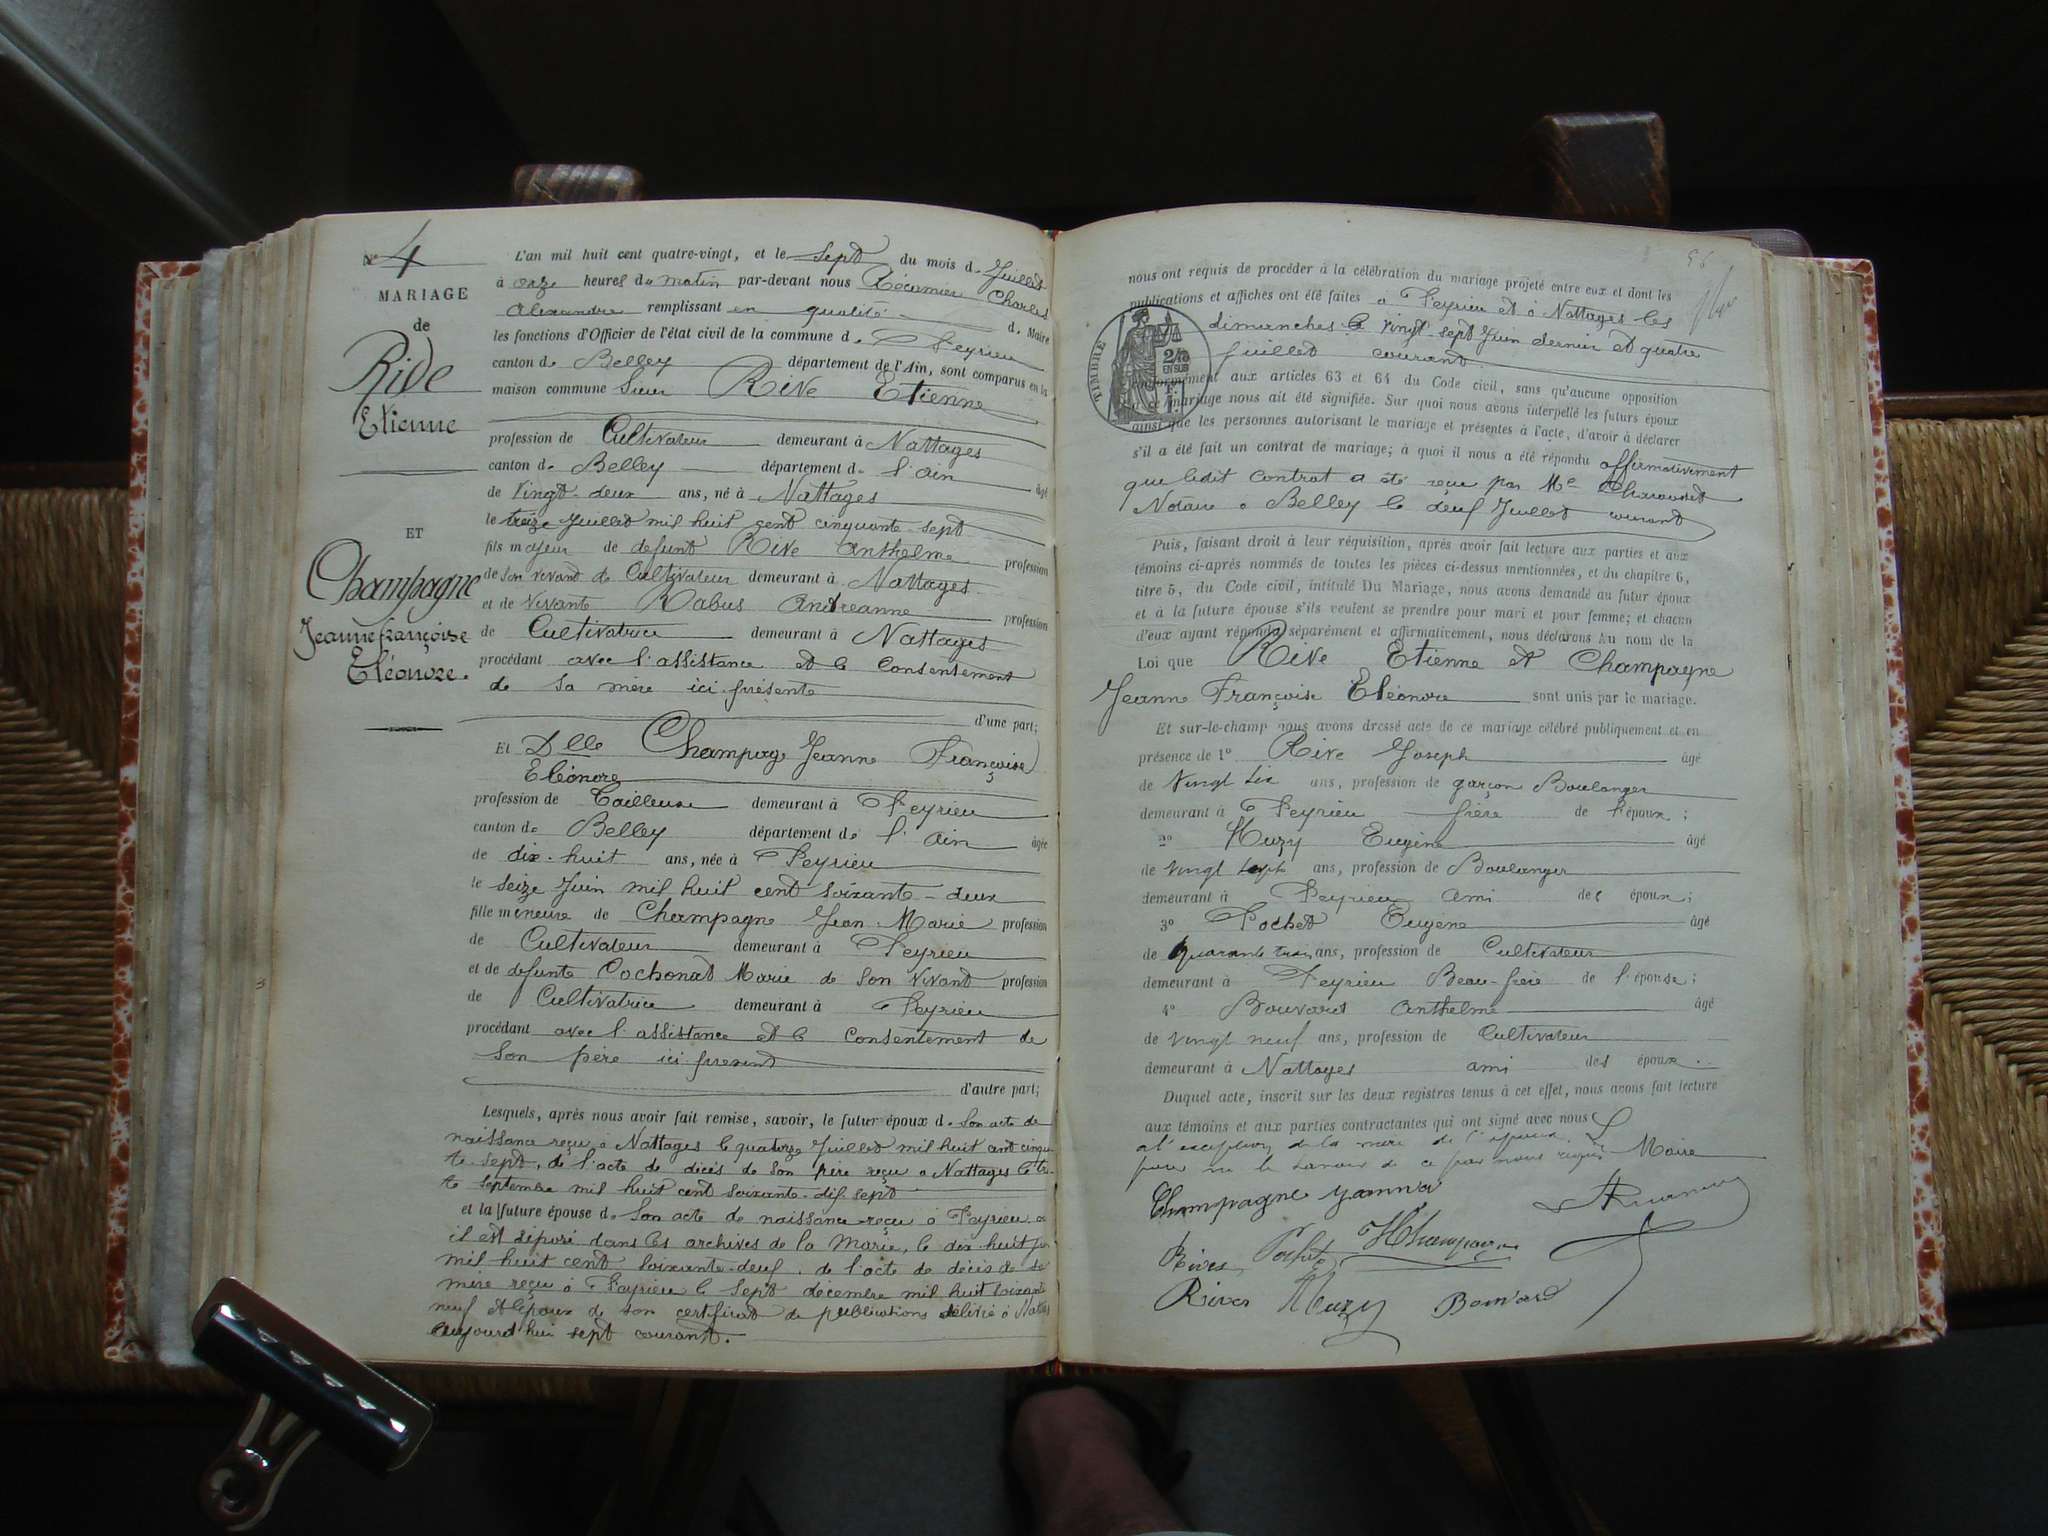 N° 4
MARIAGE
de
Rive
Etienne
ET
Champagne
Jeanne françoise
Eléonore.
L'an mil huit cent quatre-vingt, et le sept du mois d. Juillet
à onze heures du matin par-devant nous Récamier Charles
Alexandre remplissant en qualité d. Maire
les fonctions d'Officier de l'état civil de la commune d. Peyrieu
canton de Belley département de l'Ain, sont comparus en la
maison commune Sieur Rive Etienne
profession de Cultivateur demeurant à Nattages
canton de Belley département d. l'ain âgé
de vingt-deux ans, né à Nattages
le treize Juillet mil huit cent cinquante-sept
fils majeur de défunt Rive Anthelme profession
de son vivant de Cultivateur demeurant à Nattages
et de vivante Rabus Andréanne profession
de Cultivatrice demeurant à Nattages
procédant avec l'assistance et le consentement
de sa mère ici présente
d'une part;
Et Dlle Champage Jeanne Françoise
Eléonore
profession de Tailleuse demeurant à Peyrieu
canton de Belley département de l'ain âgée
de dix-huit ans, née à Peyrieu
le seize Juin mil huit cent soixante-deux
fille mineure de Champagne Jean-Marie profession
de Cultivateur demeurant à Peyrieu
et de défunte Cochonat Marie de son vivant profession
de Cultivatrice demeurant à Peyrieu
procédant avec l'assistance et le consentement de
son père ici présent
d'autre part;
Lesquels, après nous avoir fait remise, savoir, le futur époux d. son acte de
naissance reçu à Nattages le quatorze Juillet mil huit cent cinqu
te-sept, de l'acte de décès de son père reçu à Nattages le
septembre mil huit cent soixante-dix sept
et la future épouse d. son acte de naissance reçu à Peyrieu
il est déposé dans les archives de la Mairie, le dix-huit
mil huit cent soixante-deux, de l'acte de décès de sa
mère reçu à Peyrieu le sept décembre mil huit soixante
neuf et l'époux de son certificat de publications délivré à
aujourd'hui sept courant.
nous ont requis de procéder à la célébration du mariage projeté entre eux et dont les
publications et affiches ont été faites à Peyrieu et à Nattages les
dimanches le vingt-sept Juin dernier et quatre
juillet courant
TIMBRE
conformément aux articles 63 et 64 du Code civil, sans qu'aucune opposition
à ce mariage nous ait été signifiée. Sur quoi nous avons interpellé les futurs époux
ainsi que les personnes autorisant le mariage et présentes à l'acte, d'avoir à déclarer
s'il a été fait un contrat de mariage; à quoi il nous a été répondu affirmativement
que ledit contrat a été reçu par Me
Notaire à Belley le deux Juillet courant
Puis, faisant droit à leur réquisition, après avoir fait lecture aux parties et aux
témoins ci-après nommés de toutes les pièces ci-dessus mentionnées, et du chapitre 6,
titre 5, du Code civil, intitulé Du Mariage, nous avons demandé au futur époux
et à la future épouse s'ils veulent se prendre pour mari et pour femme; et chacun
d'eux ayant répondu séparément et affirmativement, nous déclarons Au nom de la
Loi que Rive Etienne et Champagne
Jeanne Françoise Eléonore sont unis par le mariage.
Et sur-le-champ nous avons dressé acte de ce mariage célébré publiquement et en
présence de 1° Rive Joseph âgé
de vingt six ans, profession de garçon Boulanger
demeurant à Peyrieu frère de l'époux;
2° Huzy Eugène âgé
de vingt sept ans, profession de Boulanger
demeurant à Peyrieu ami des époux;
3° Pochet Eugène âgé
de quarante trois ans, profession de Cultivateur
demeurant à Peyrieu Beau-frère de l'épouse;
4° Bouvard Anthelme âgé
de vingt neuf ans, profession de Cultivateur
demeurant à Nattages ami des époux.
Duquel acte, inscrit sur les deux registres tenus à cet effet, nous avons fait lecture
aux témoins et aux parties contractantes qui ont signé avec nous
à l'exception de la mère de l'époux
pour ne le savoir de ce par nous requis Maire
Champagne
Rives Pochet Champagne
Rives Huzy Bouvard